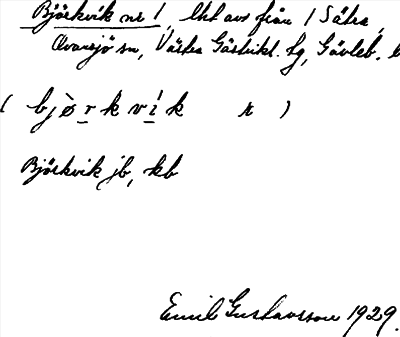 Björkvik nr 1, Utt avs från 1 Sätra,
Ovansjö sn, Västra Gästrikl. tg, Gävleb. l
( bjòrkvík r )
Björkvik jb, kb
Emil Gustavsson 1929.